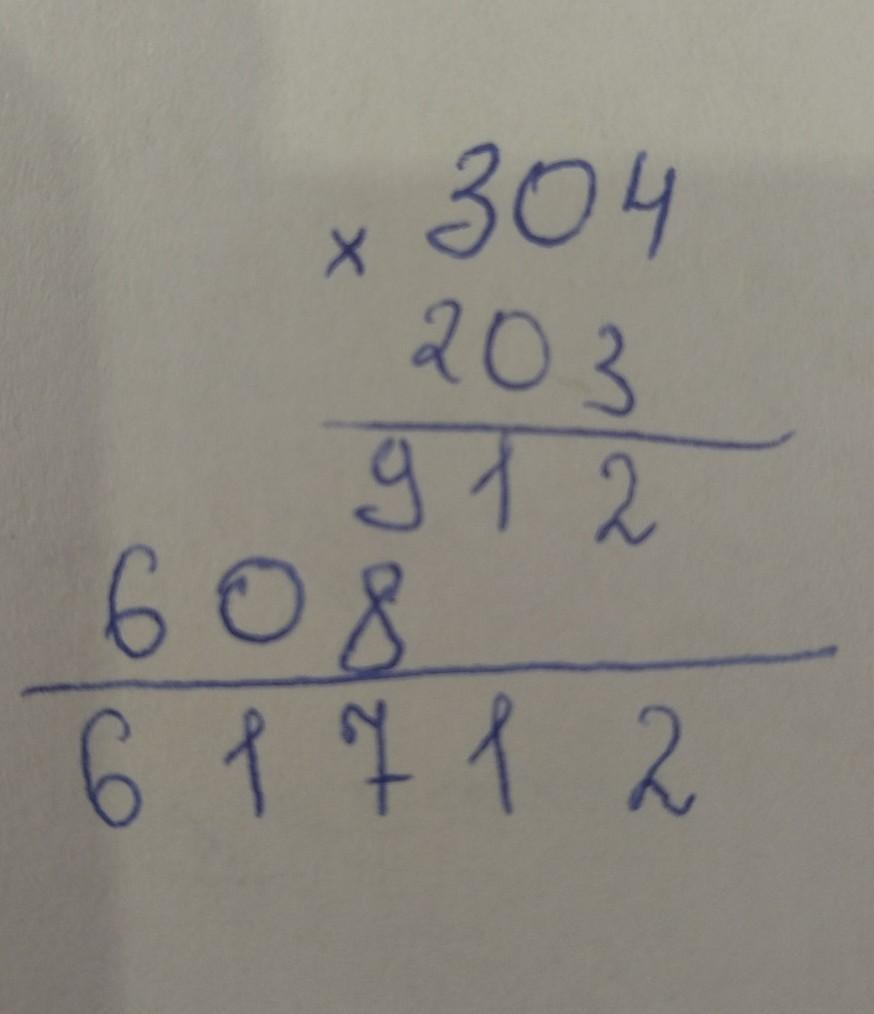 × 304
203
912
608
61712